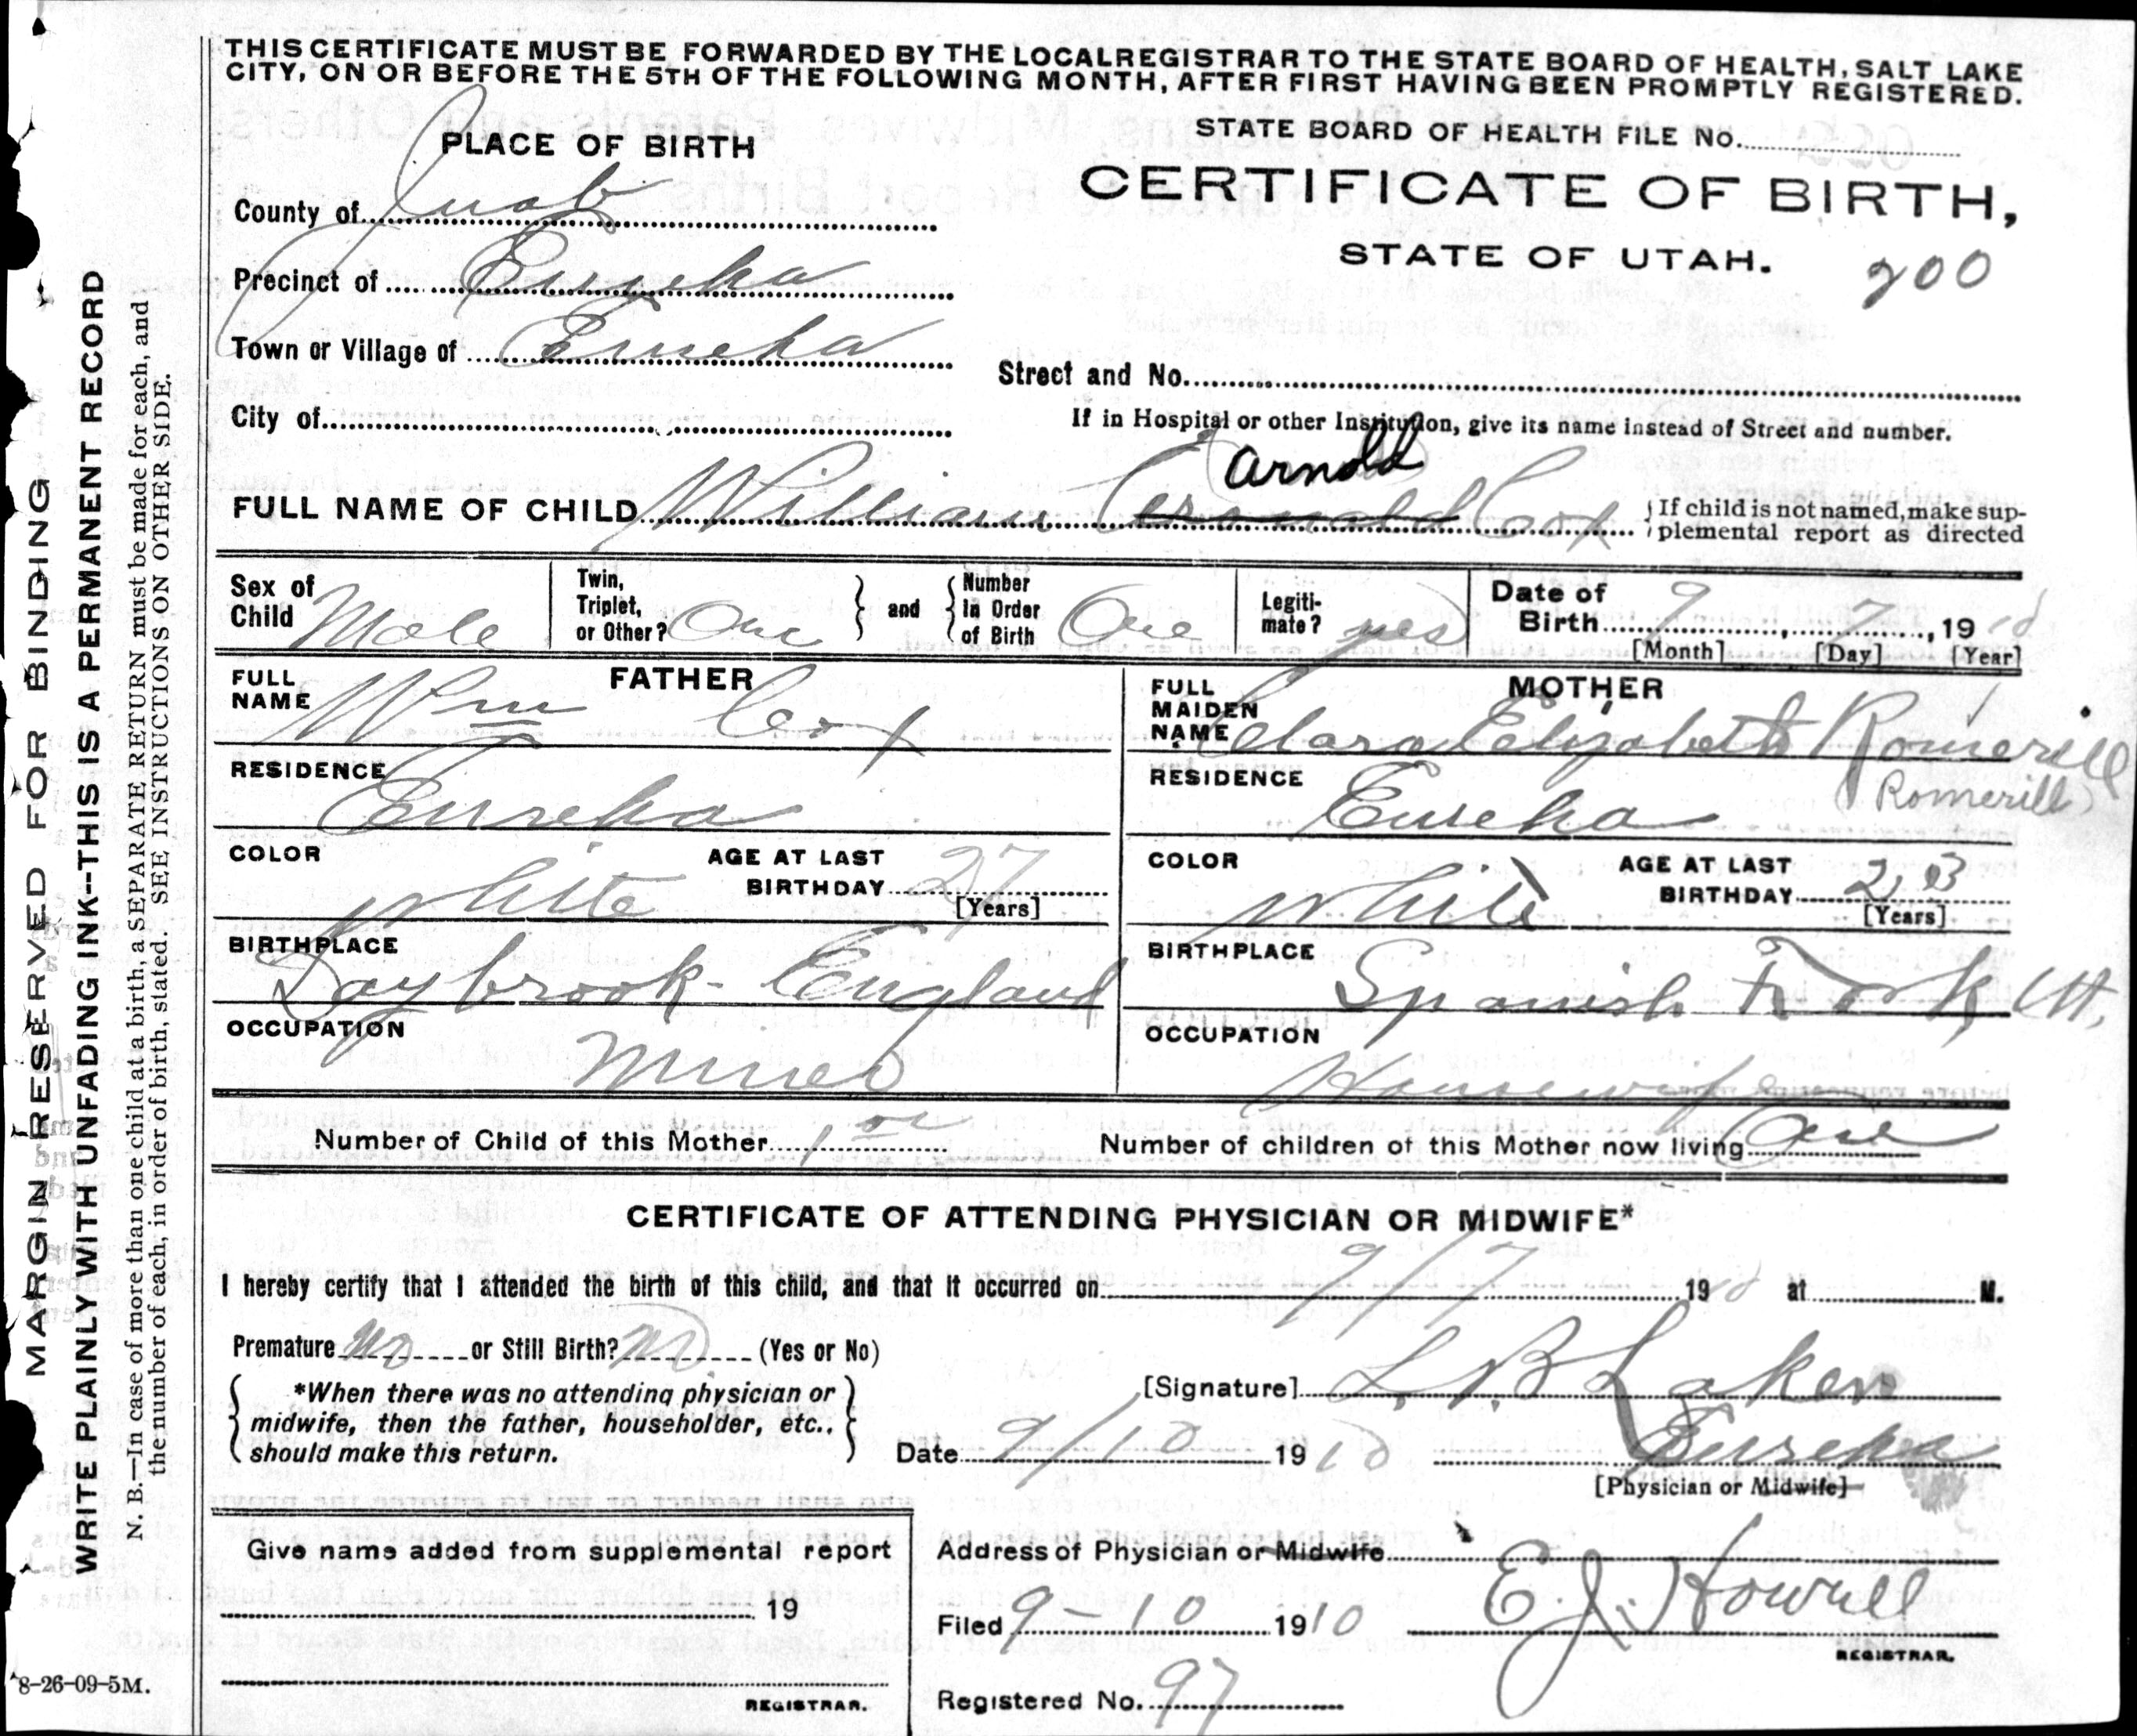 THIS CERTIFICATE MUST BE FORWARDED BY THE LOCAL REGISTRAR TO THE STATE BOARD OF HEALTH, SALT LAKE
CITY, ON OR BEFORE THE 5TH OF THE FOLLOWING MONTH, AFTER FIRST HAVING BEEN PROMPTLY REGISTERED.
PLACE OF BIRTH
STATE BOARD OF HEALTH FILE No.
County of Juab
CERTIFICATE OF BIRTH,
STATE OF UTAH.
200
Precinct of Eureka
Town or Village of Eureka
Street and No.
City of
If in Hospital or other Institution, give its name instead of Street and number.
Arnold
FULL NAME OF CHILD William Cox
If child is not named, make sup-
plemental report as directed
Sex of Child Male
Twin, Triplet, or Other? One
and
Number In Order of Birth One
Legiti-mate? yes
Date of Birth 9, 7, 1910
[Month] [Day] [Year]
FATHER
FULL NAME Wm Cox
RESIDENCE Eureka
COLOR White
AGE AT LAST BIRTHDAY 27
[Years]
BIRTHPLACE Daybrook - England
OCCUPATION Miner
MOTHER
FULL MAIDEN NAME Clara Elizabeth Romerill
(Romerill)
RESIDENCE Eureka
COLOR White
AGE AT LAST BIRTHDAY 23
[Years]
BIRTHPLACE Spanish Fork, Ut.
OCCUPATION Housewife
Number of Child of this Mother 1
Number of children of this Mother now living One
CERTIFICATE OF ATTENDING PHYSICIAN OR MIDWIFE*
I hereby certify that I attended the birth of this child, and that it occurred on 9/7 1910 at M.
Premature no or Still Birth? no (Yes or No)
*When there was no attending physician or
midwife, then the father, householder, etc.,
should make this return.
[Signature] L. B. Laker
Date 9/10 1910
Eureka
[Physician or Midwife]
Give name added from supplemental report
19
REGISTRAR.
Address of Physician or Midwife
Filed 9-10 1910
E. J. Howell
REGISTRAR.
Registered No. 97
8-26-09-5M.
MARGIN RESERVED FOR BINDING
WRITE PLAINLY WITH UNFADING INK--THIS IS A PERMANENT RECORD
N. B.—In case of more than one child at a birth, a SEPARATE RETURN must be made for each, and
the number of each, in order of birth, stated. SEE INSTRUCTIONS ON OTHER SIDE.